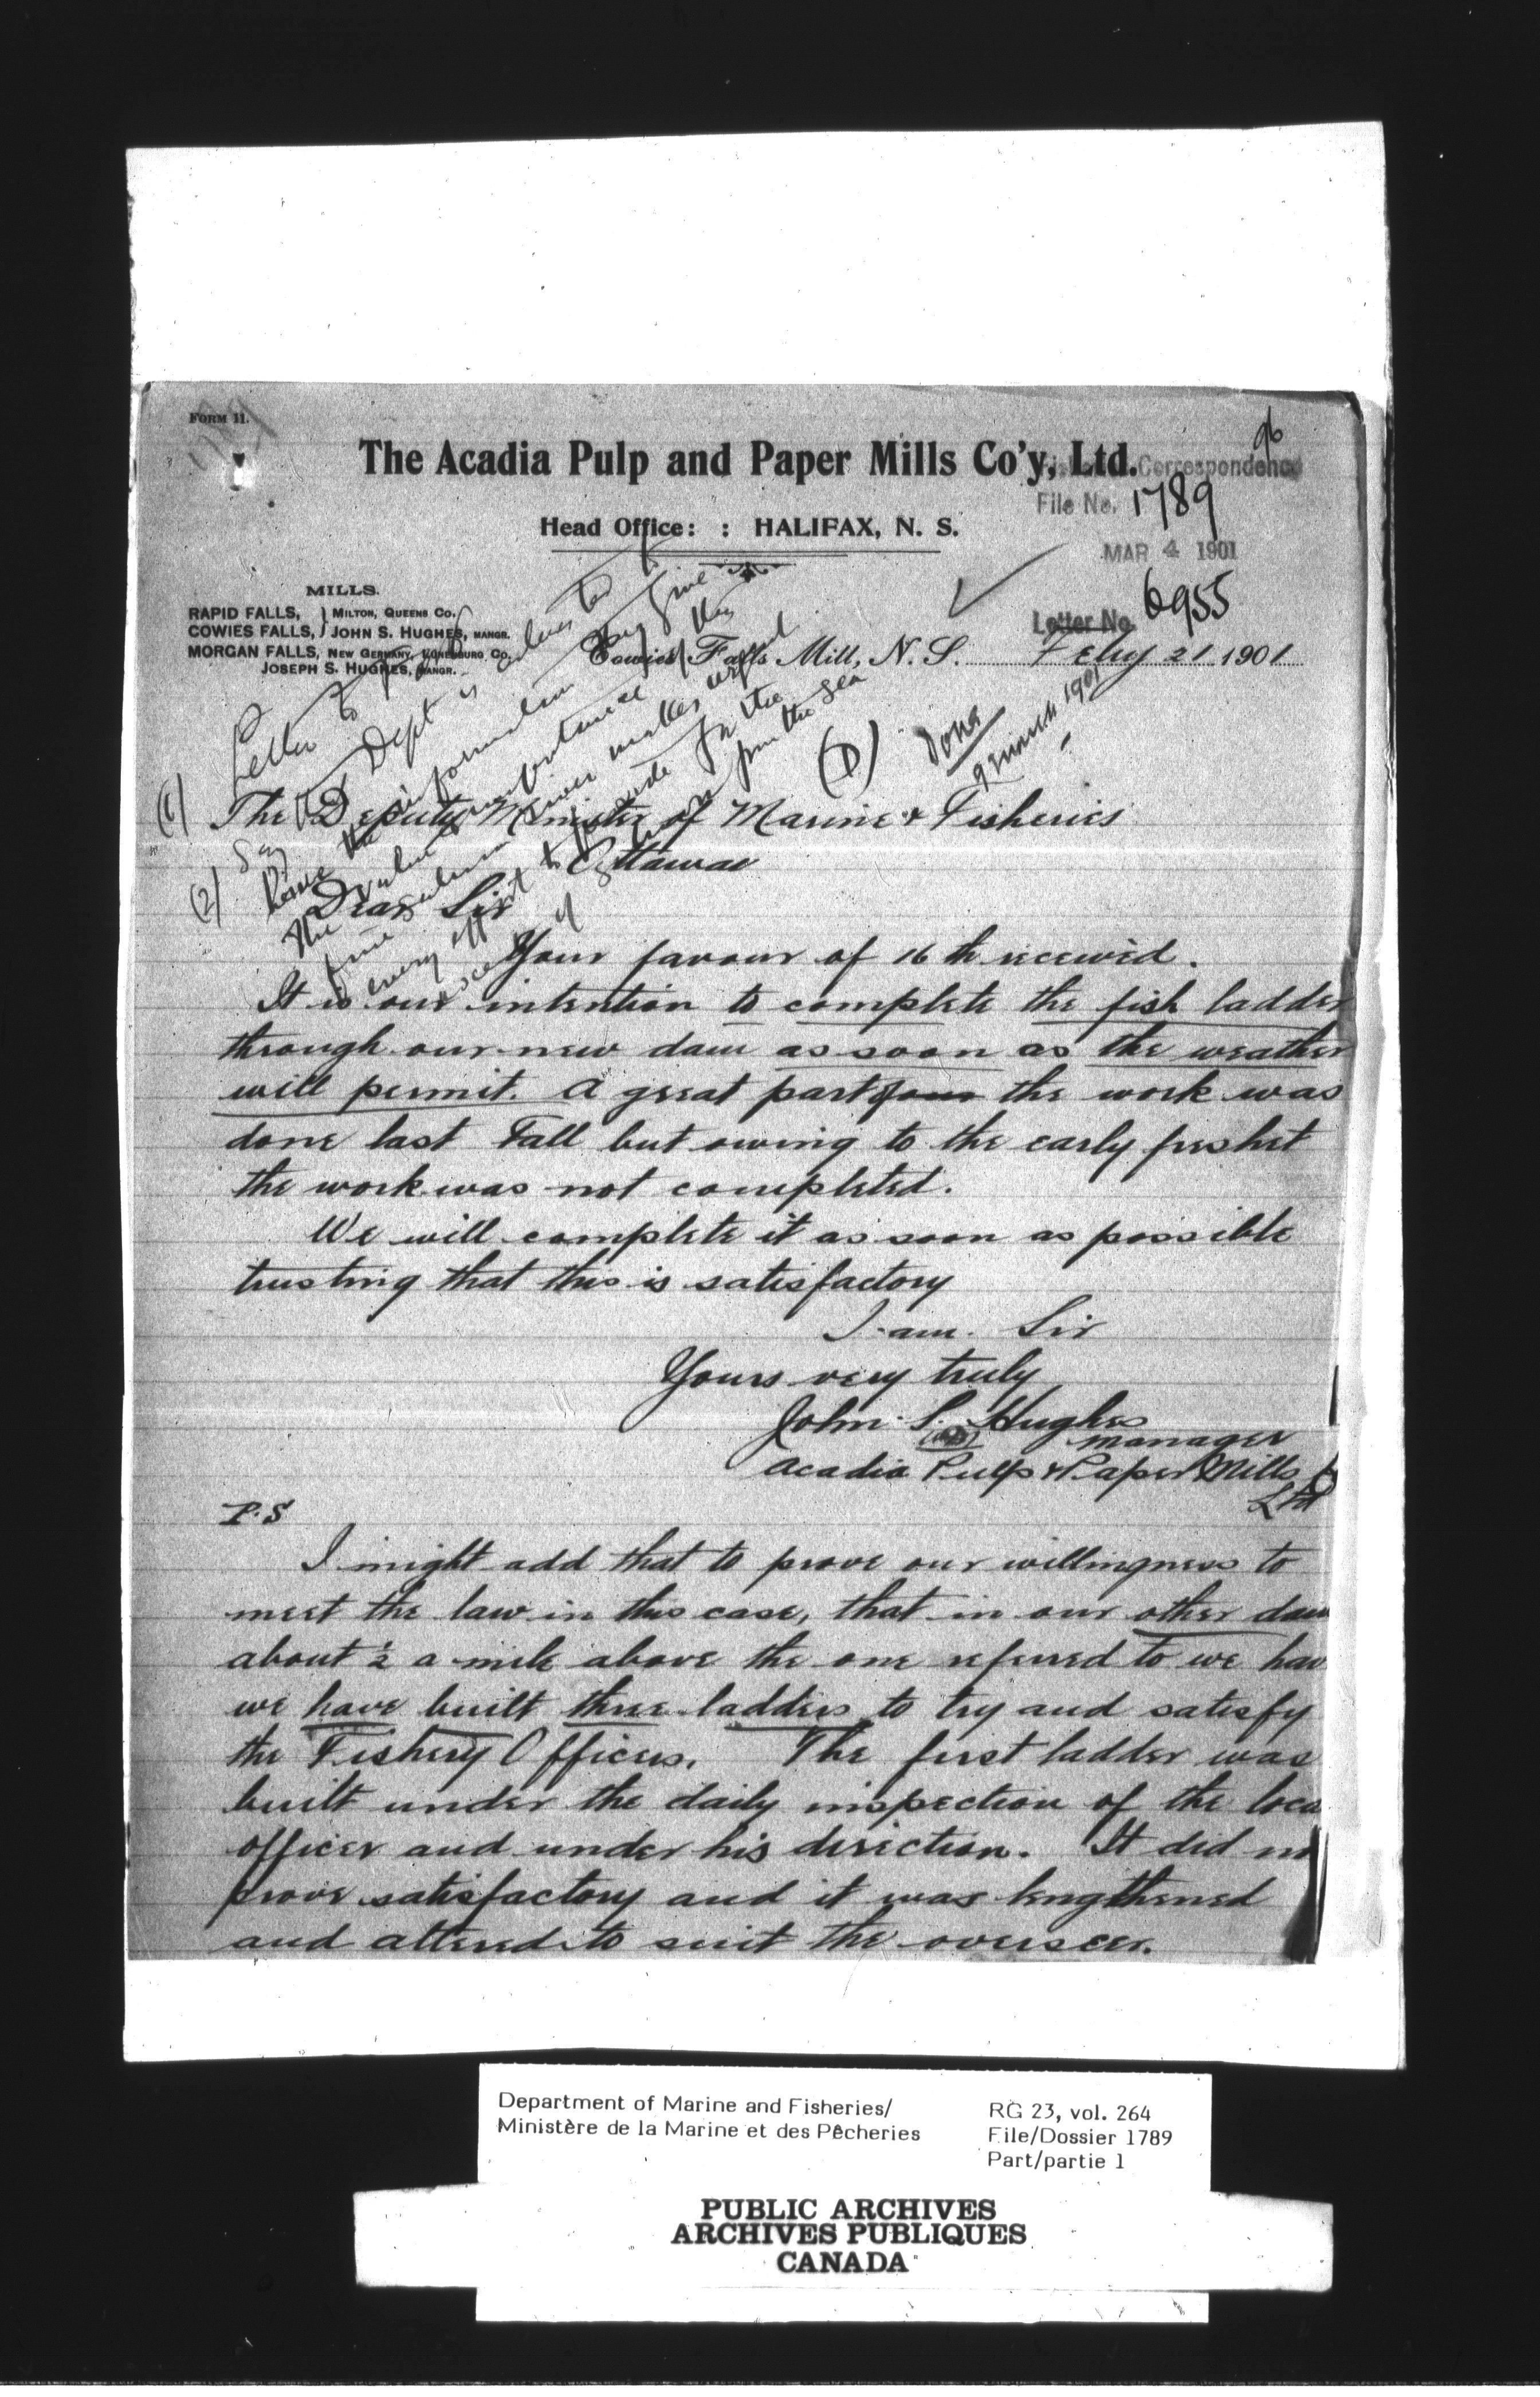 FORM 11.
The Acadia Pulp and Paper Mills Co'y, Ltd.
Correspondence
File No. 1789
Head Office: : HALIFAX, N. S.
MAR 4 1901
MILLS.
RAPID FALLS, } MILTON, QUEENS CO.
COWIES FALLS, } JOHN S. HUGHES, MANGR.
MORGAN FALLS, NEW GERMANY, LUNENBURG CO.
JOSEPH S. HUGHES, MANGR.
Letter No. 6955
Cowies Falls Mill, N. S. Feby 21 1901
(1) Letter to
Dept is
(2) Say
the information they give
the importance
river makes
every effort to
from the sea
(D) Done
9 March 1901
The Deputy Minister of Marine & Fisheries
Ottawa
Dear Sir
Your favour of 16th received.
It is our intention to complete the fish ladder
through our new dam as soon as the weather
will permit. A great part of the work was
done last Fall but owing to the early freshet
the work was not completed.
We will complete it as soon as possible
trusting that this is satisfactory
I am Sir
Yours very truly
John S. Hughes
manager
Acadia Pulp & Paper Mills Co
Ltd
P.S
I might add that to prove our willingness to
meet the law in this case, that in our other dam
about ½ a mile above the one referred to we hav
we have built three ladders to try and satisfy
the Fishery Officers. The first ladder was
built under the daily inspection of the loca
officer and under his direction. It did no
prove satisfactory and it was lengthened
and altered to suit the overseer.
Department of Marine and Fisheries/
Ministère de la Marine et des Pêcheries
RG 23, vol. 264
File/Dossier 1789
Part/partie 1
PUBLIC ARCHIVES
ARCHIVES PUBLIQUES
CANADA